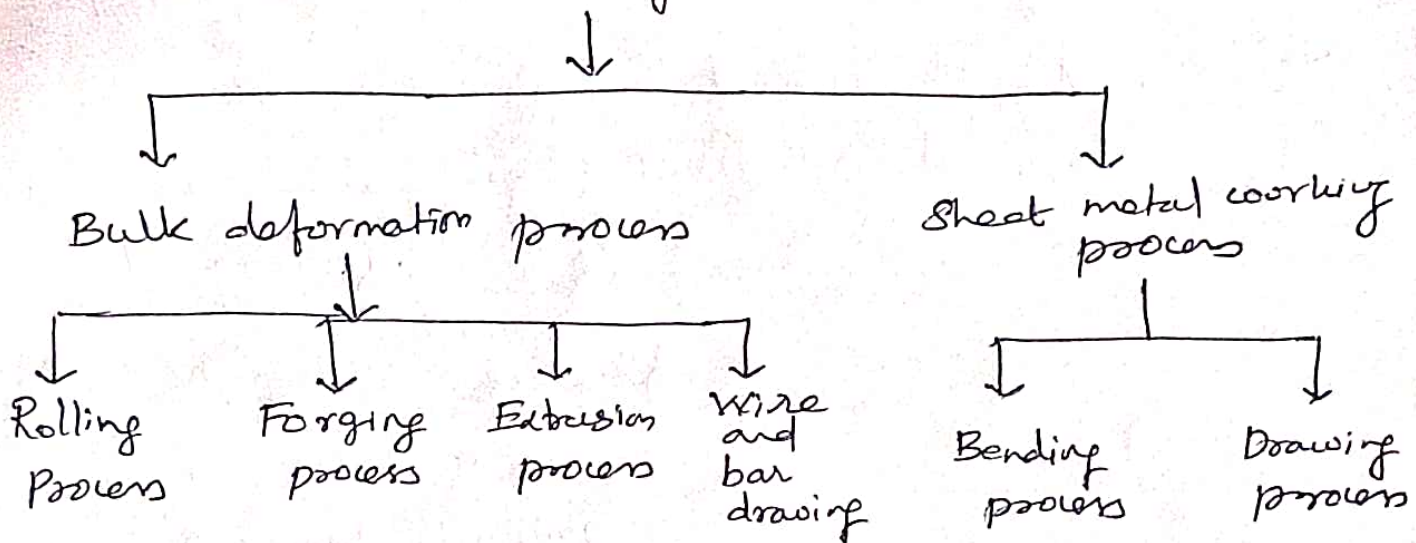 Bulk deformation process
Sheet metal working
process
Rolling
Process
Forging
process
Extrusion
process
Wire
and
bar
drawing
Bending
process
Drawing
process